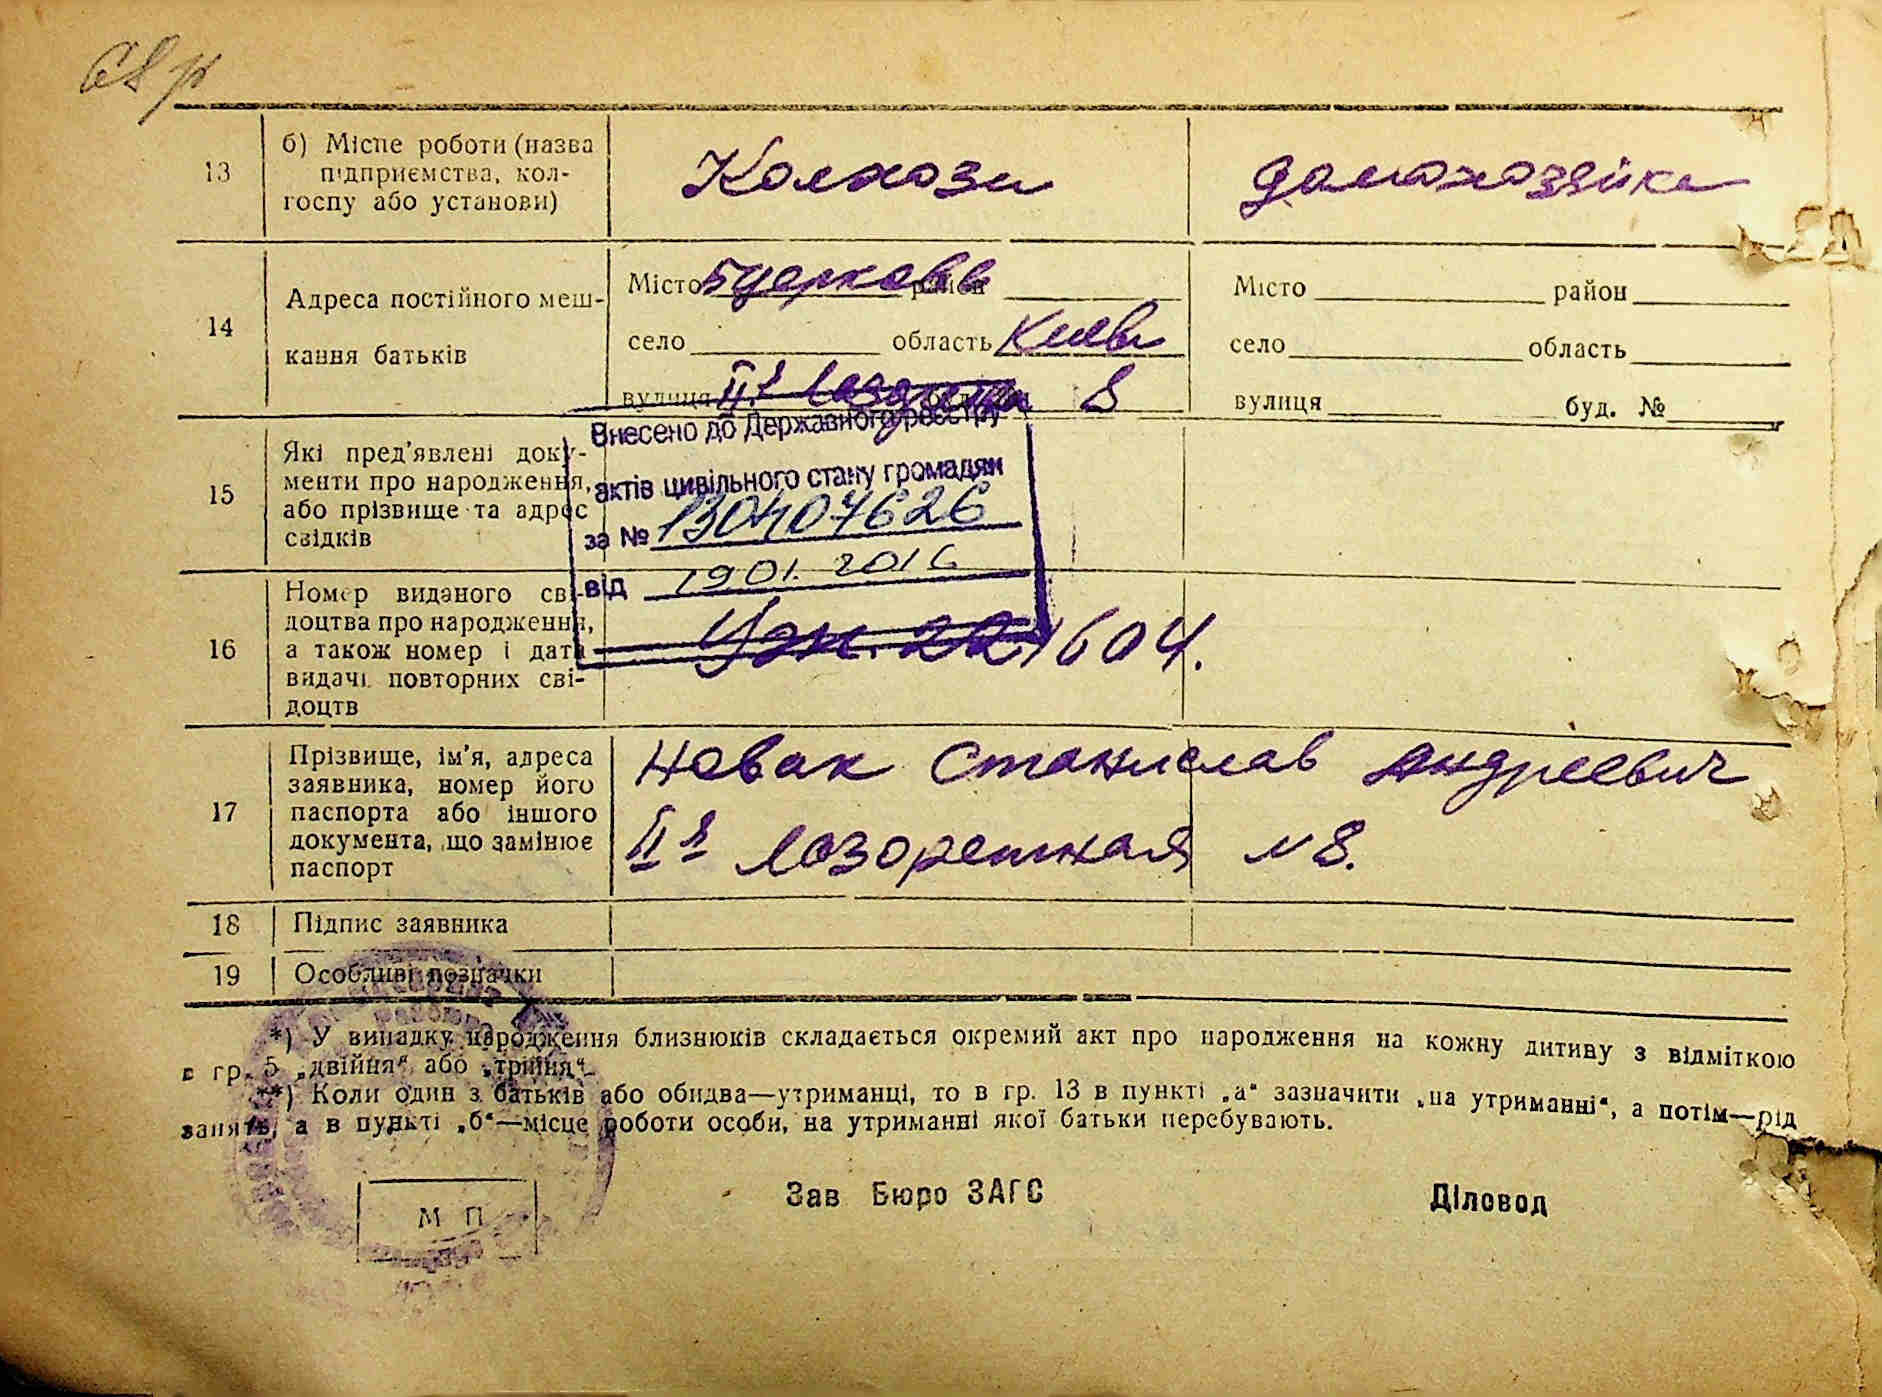 13 б) Місце роботи (назва підприємства, колгоспу або установи) Колхози домохозяйка
14 Адреса постійного мешкання батьків
Місто Бцерковь район
село область Киевы
вулиця ІІ-я 8
Місто район
село область
вулиця буд. №
15 Які пред'явлені документи про народження, або прізвище та адрес свідків
Внесено до Державного реєстру
актів цивільного стану громадян
за № 130407626
від 19 01. 2016
16 Номер виданого свідоцтва про народження, а також номер і дата видачі повторних свідоцтв 604.
17 Прізвище, ім'я, адреса заявника, номер його паспорта або іншого документа, що замінює паспорт
Новак Станислав Андреевич
ІІ-я Лозоретная № 8.
18 Підпис заявника
19 Особливі позначки
*) У випадку народження близнюків складається окремий акт про народження на кожну дитину з відміткою
в гр. 5 „двійня“ або „трійня“.
**) Коли один з батьків або обидва—утриманці, то в гр. 13 в пункті „а“ зазначити „на утриманні“, а потім—рід
занять, а в пункті „б“—місце роботи особи, на утриманні якої батьки перебувають.
М П
Зав Бюро ЗАГС
Діловод